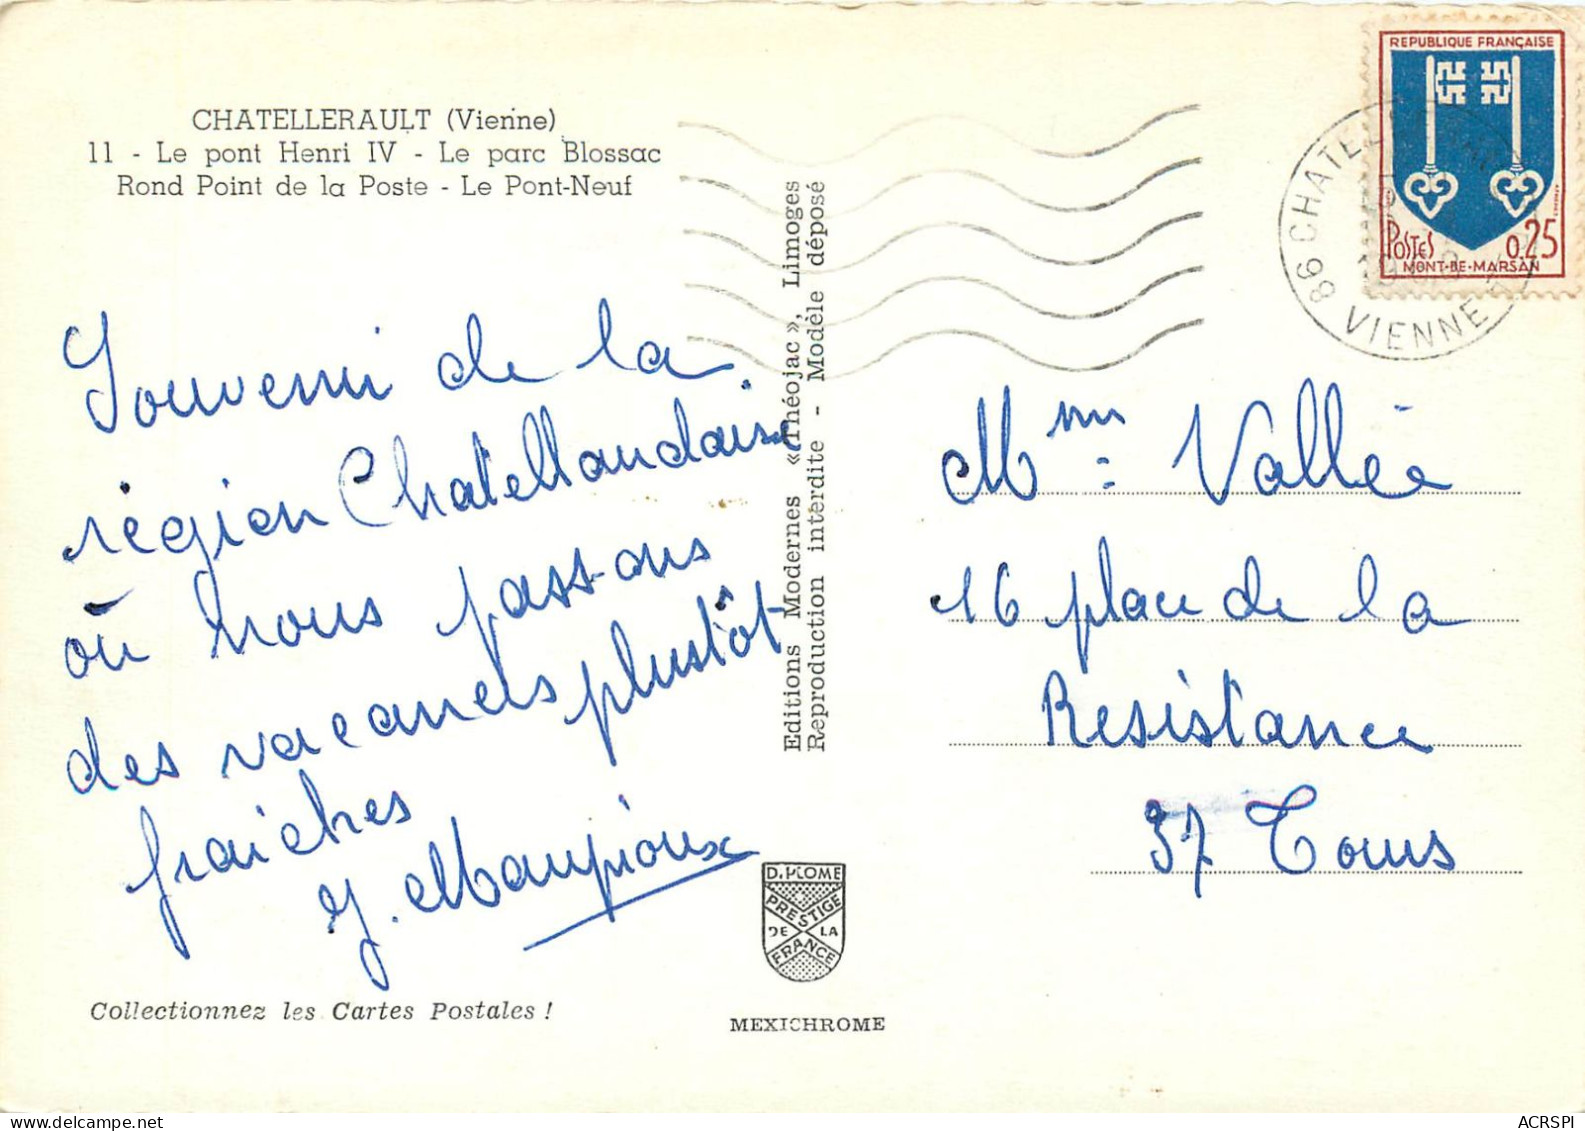 CHATELLERAULT (Vienne)
11 - Le pont Henri IV - Le parc Blossac
Rond Point de la Poste - Le Pont-Neuf
Souvenir de la
région Chatellaudaise
où nous passons
des vacances plustôt
fraiches
J. Maupioux
Collectionnez les Cartes Postales !
Editions Modernes «Théojac», Limoges
Reproduction interdite - Modèle déposé
DIPLOME
PRESTIGE
DE LA
FRANCE
MEXICHROME
REPUBLIQUE FRANÇAISE
POSTES 0,25
MONT-DE-MARSAN
86 CHATELLERAULT
VIENNE
Mme Vallée
16 place de la
Resistance
37 Tours
ACRSPI